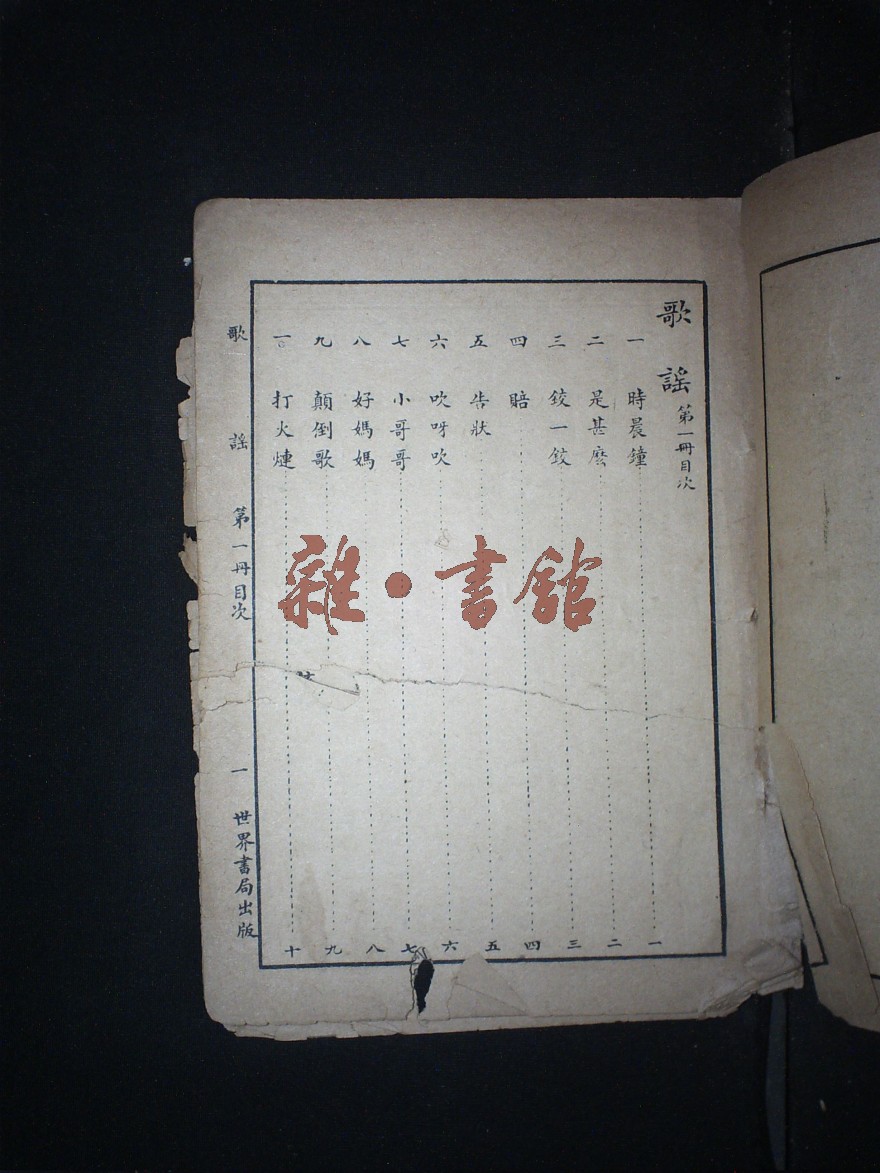 歌謠 第一冊目次
一 時晨鐘 一
二 是甚麽 二
三 鉸一鉸 三
四 賠 四
五 告狀 五
六 吹呀吹 六
七 小哥哥 七
八 好媽媽 八
九 顛倒歌 九
一〇 打火熑 十
歌謠 第一冊目次 一 世界書局出版
雜·書館